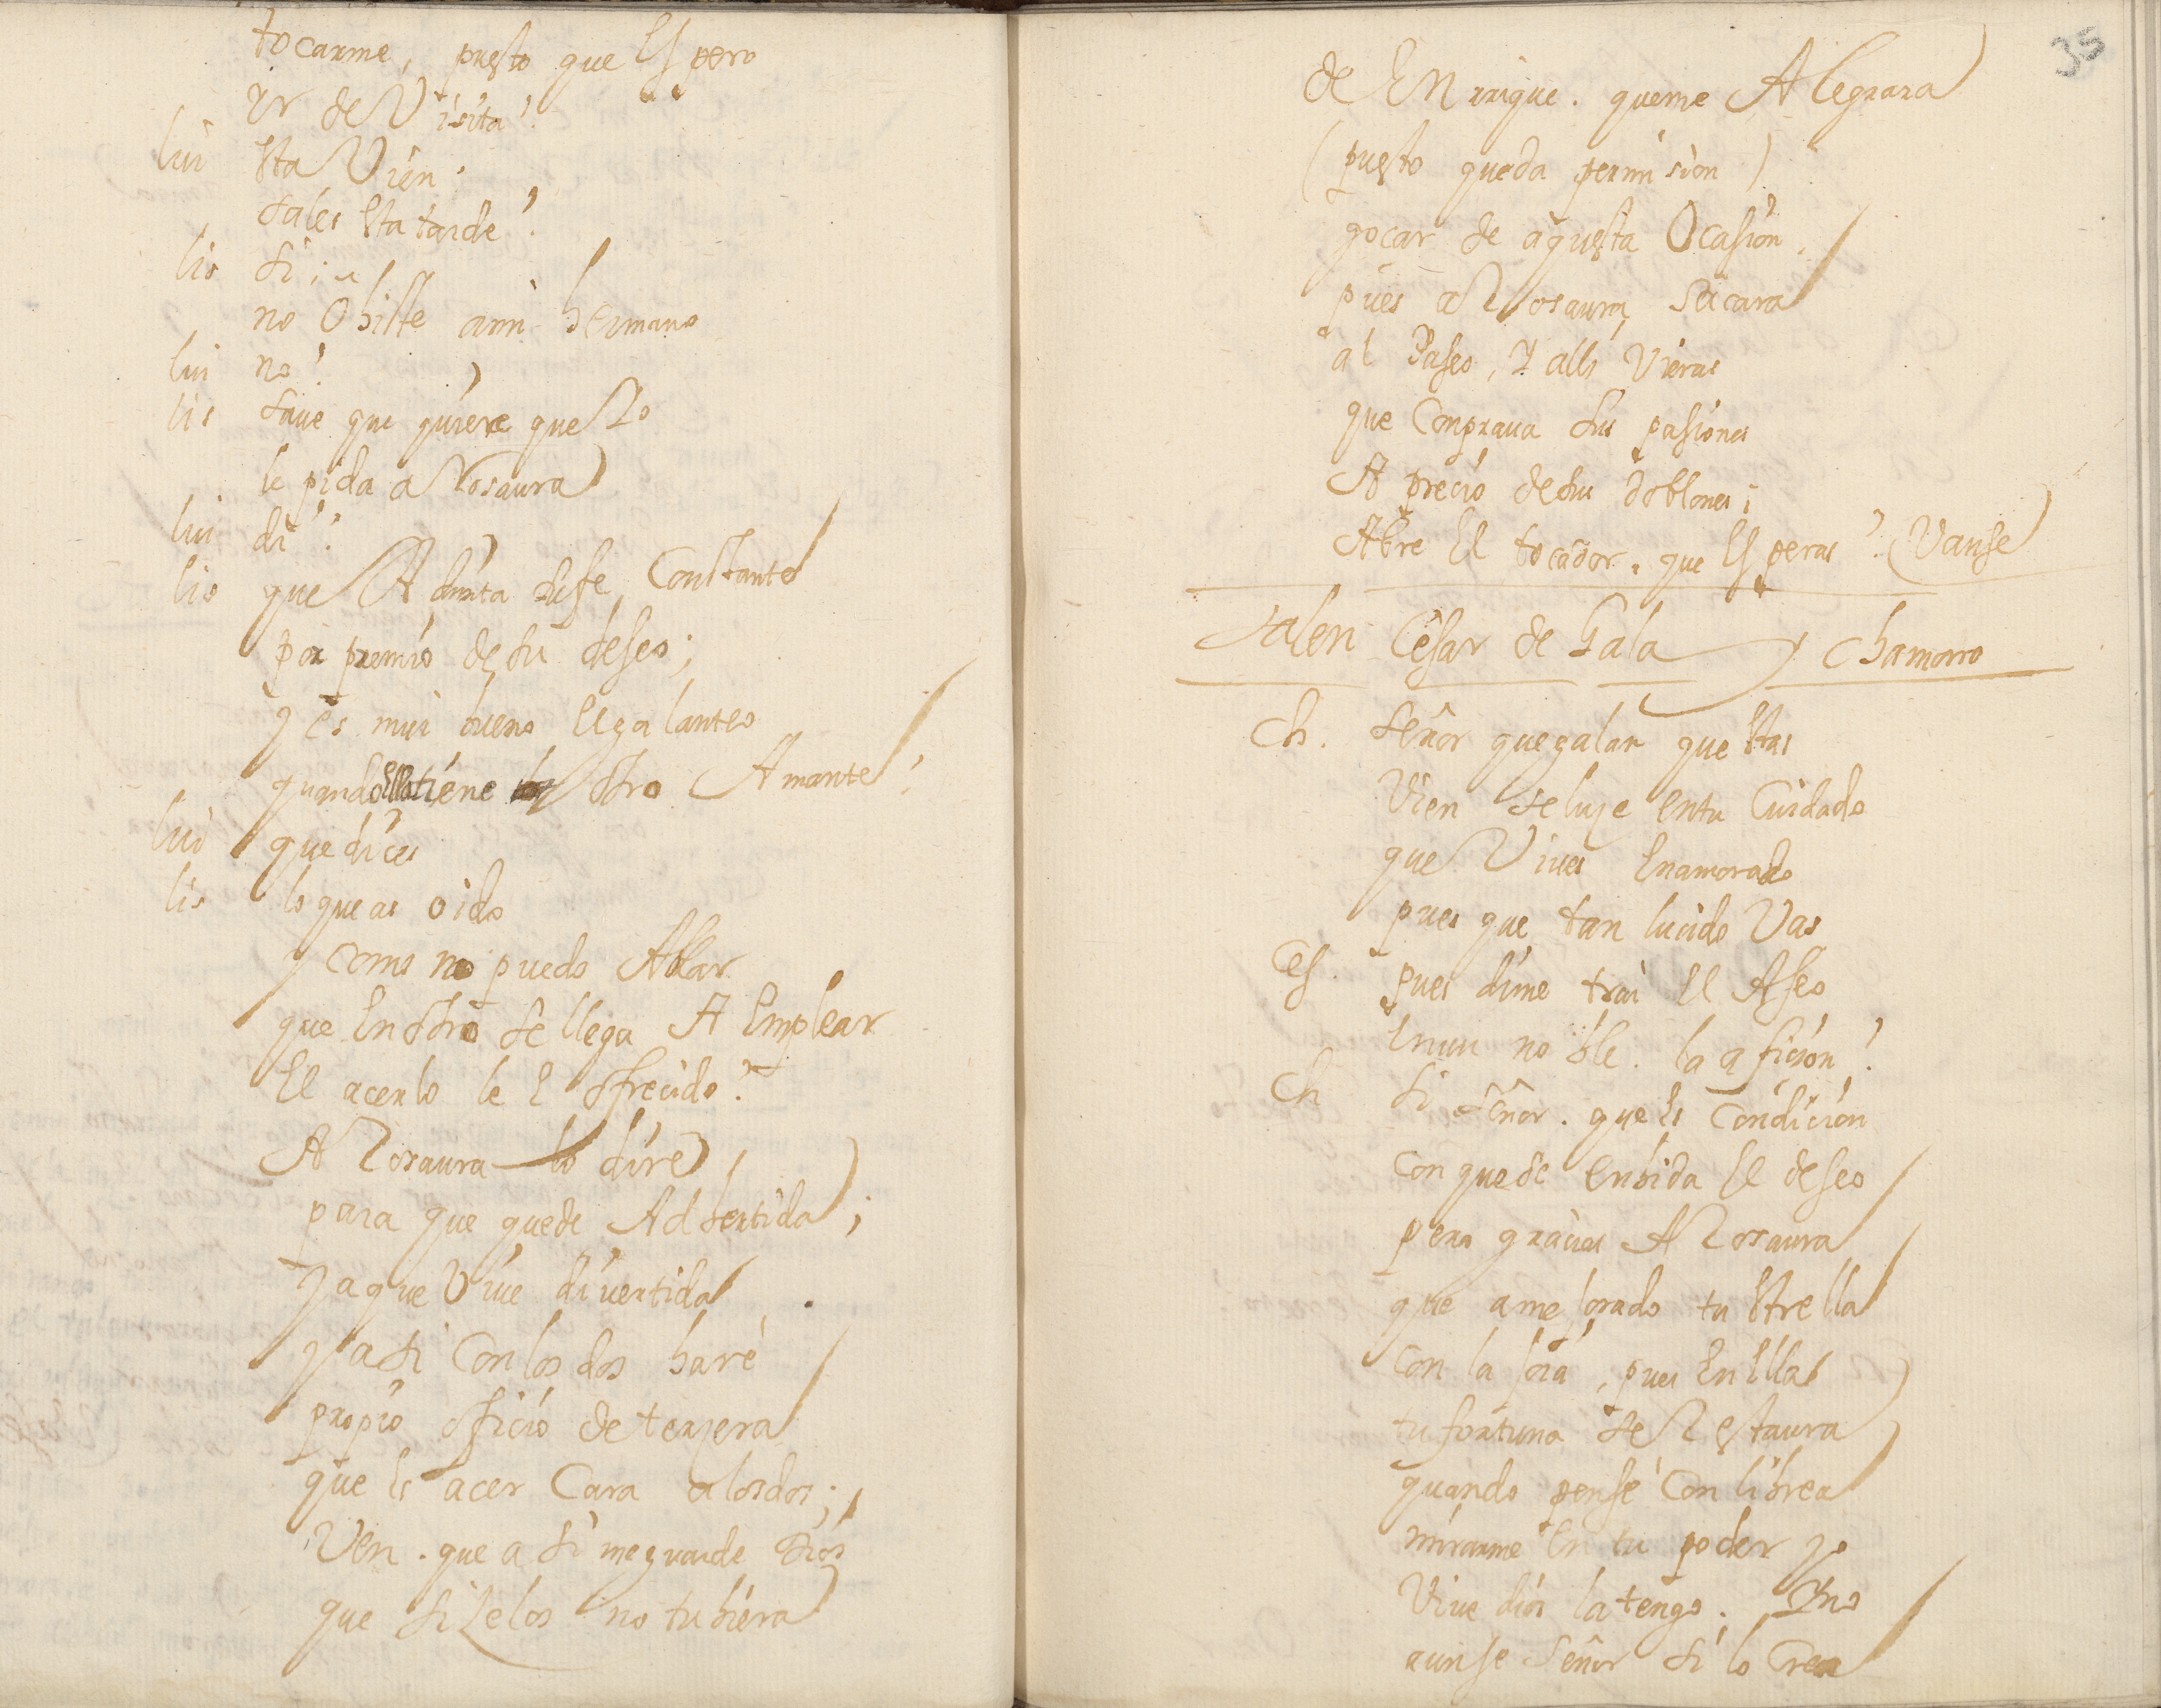 tocarme, puesto que Espero
yr de Visita?
lui Esta Vien.
sales Esta tarde?
lis si;
no Obiste a mi hermano
lui no?
lis save que quiere que Yo
le pida a Rosaura
lui di?
lis que Admita su fe Constante
por premio de su deseo;
y es mui bueno El galanteo
quando Ella tiene otro Amante!
lui que dices
lis lo que as oido
y como no puedo Ablar
que En otro se llega A Emplear
El acerlo le E ofrecido?
A Rosaura lo dire,
para que quede Adbertida;
ya que Vive divertida
y asi Con los dos haré
propio oficio de terzera
que Es acer Cara a los dos;
Ven. que asi me guarde Dios
que si Zelos no tubiera
35
de Enrrique. que me Alegrara
(puesto queda permision)
goçar de aquesta Ocasion,
pues a Rosaura sacara
al Paseo, Y alli Vieras
que Comprava sus pasiones
A precio de sus doblones;
Abre El tocador. que Esperas? (Vanse
Salen Cesar de Gala y Chamorro
Ch. señor que galan que Estas
Vien se luze En tu Cuidado
que Vives Enamorado
pues que tan lucido Vas
Ces. pues dime trai El Aseo
En un noble. la aficion?
Ch si señor. que Es Condicion
con que se Enbida El deseo
pero gracias A Rosaura
que a mejorado tu Estrella
Con la joia, pues En Ella
tu fortuna se Restaura
quando pense Con librea
mirarme En tu poder yo
Vive dios la tengo. Yno
aun se señor si lo Crea